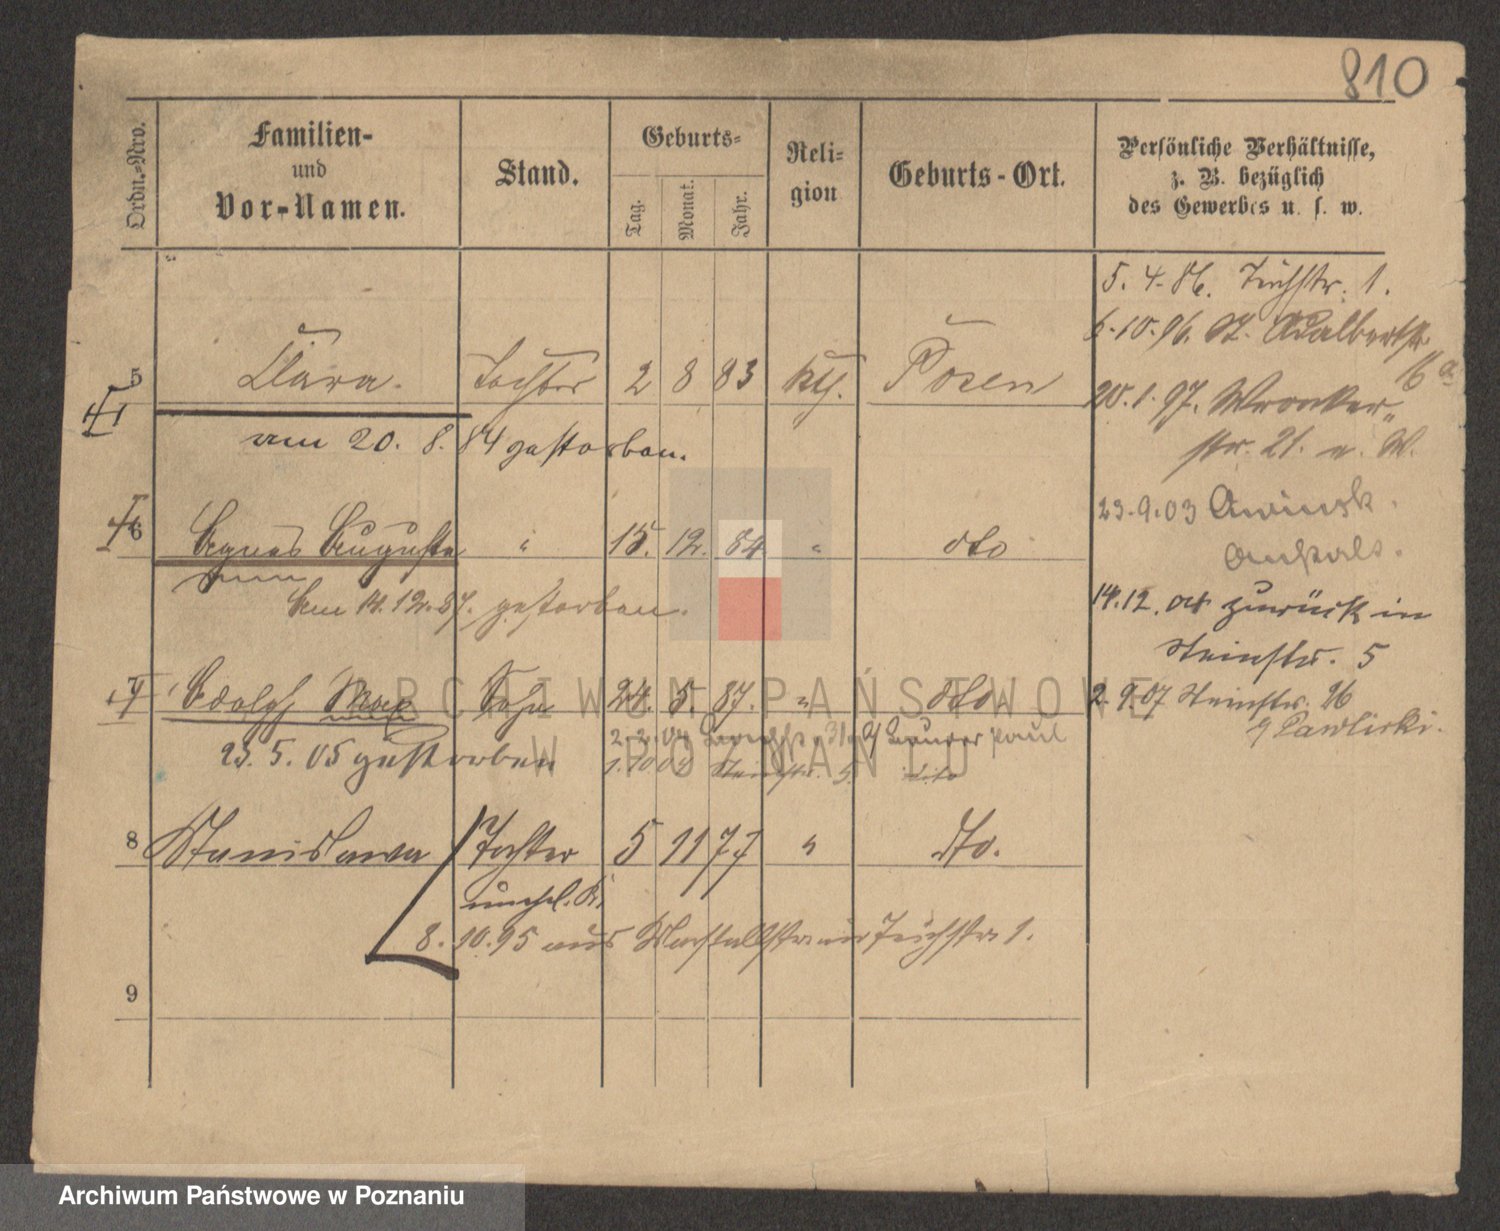 810
Ordn.-Nro.
Familien-
und
Vor-Namen.
Stand.
Geburts-
Tag.
Monat.
Jahr.
Reli-
gion
Geburts-Ort.
Persönliche Verhältnisse,
z. B. bezüglich
des Gewerbes u. s. w.
5. 4. 86. Teichstr. 1.
6. 10. 96. St. Adalbertstr.
16a
5 Clara. Tochter 2 8 83 kth. Posen
20. 1. 97. Wronker-
str. 21. u. W.
am 20. 8. 84 gestorben.
6 Agnes Auguste " 15. 12. 84 " dto
23.9.03
14.12. zurück in
Am 14. 12. 87. gestorben.
Steinstr. 5
7 Adolph Max Sohn 24. 5. 87. " dto
2. 9. 07 Steinstr. 26
Pawlicki.
23. 5. 05 gestorben
2. 2. 04
Paul
Steinstr. 5. dito
8 Stanislawa Tochter 5 11 77 " dto.
unehl. K.
8. 10. 95 aus Marstallstr. in Teichstr. 1.
9
ARCHIWUM PAŃSTWOWE
W POZNANIU
Archiwum Państwowe w Poznaniu